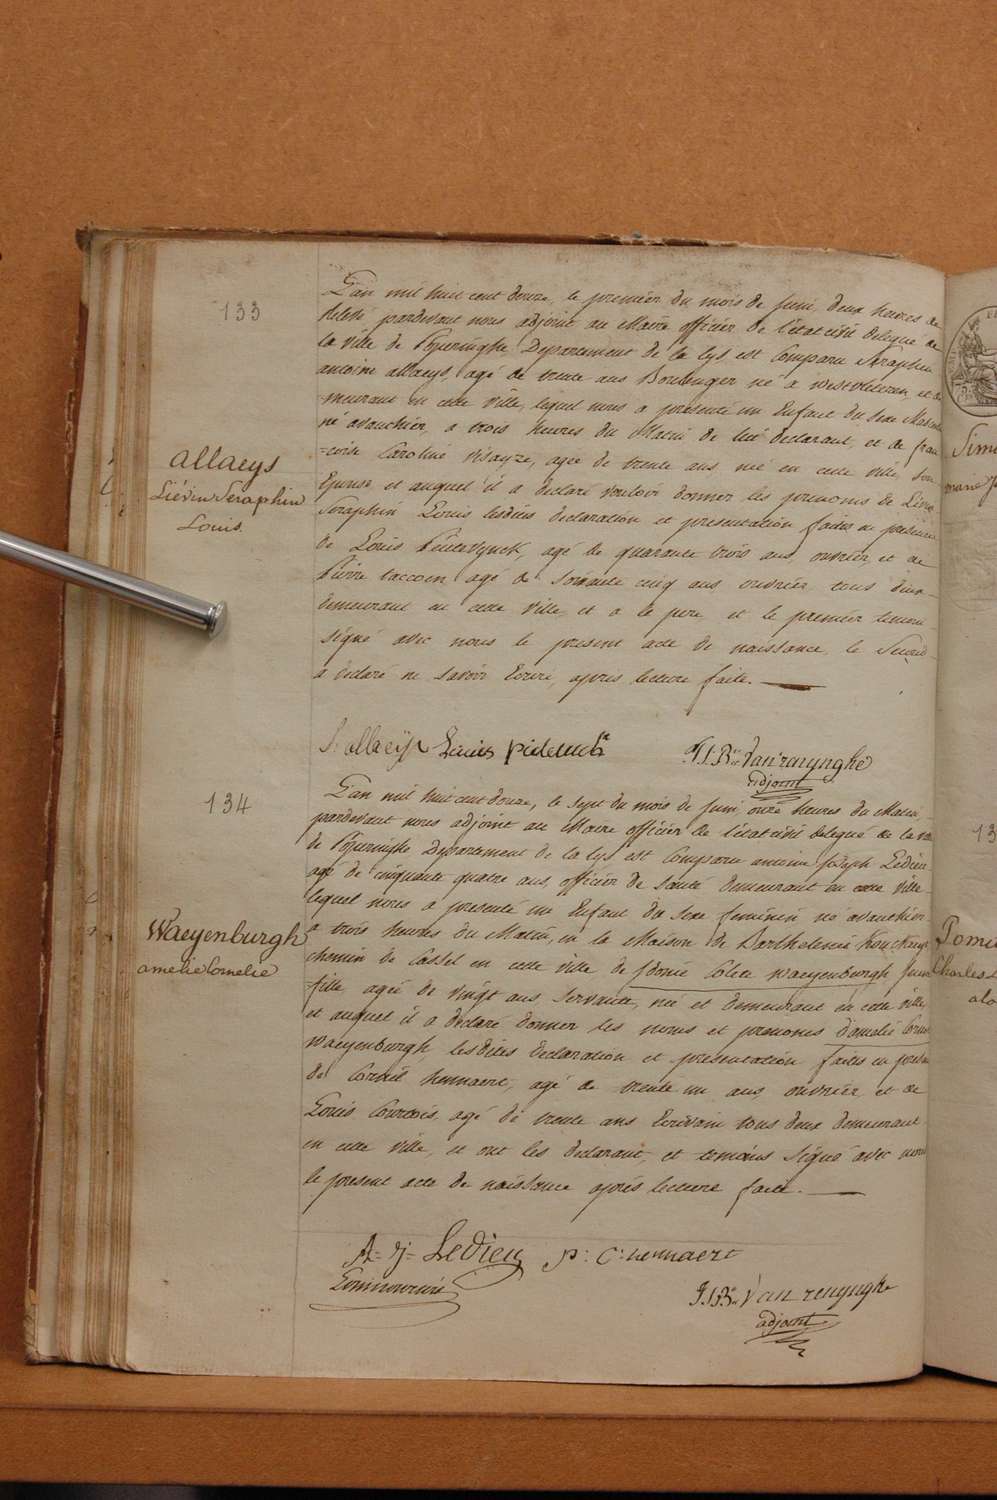 133
allaeys
Liévin Seraphin
Louis.
L'an mil huit cent douze, le premier du mois de Juin, deux heures de
relevé pardevant nous adjoint au Maire officier de l'état civil delegué de
la ville de Poperinghe Departement de la Lys est Comparu Seraphin
antoine allaeys, agé de trente ans Boulanger né a westvleteren, et de
-meurant en cette ville, lequel nous a presenté un Enfant du Sexe Masculin
né avanthier, a trois heures du Matin de lui declarant, et de fran
=coise Caroline agée de trente ans, née en cette ville, Son
Epouse, et auquel il a declaré vouloir donner les prenoms de Liévin
Seraphin Louis lesdites declaration et presentation faites en presence
de Louis agé de quarante trois ans, ouvrier et de
Pierre agé de Soixante cinq ans ouvrier tous deux
demeurant en cette ville, et a le pere, et le premier temoin
signé avec nous le present acte de naissance, le Second
a declaré ne Savoir Ecrire, apres lecture faite.
S. allaeÿs Louis
J.J.Bte Van renynghe
adjoint
134
Waeyenburgh
amelie Cornelie
L'an mil huit cent douze, le sept du mois de Juin, onze heures du Matin,
pardevant nous adjoint au Maire officier de l'état civil delegué de la ville
de Poperinghe Departement de la Lys est Comparu antoine Joseph Ledieu
agé de cinquante quatre ans, officier de Santé demeurant en cette ville
lequel nous a presenté un Enfant du Sexe feminin né avanthier
a trois heures du Matin, en la Maison de Barthelemie
chemin de Cassel en cette ville de Idonie Colete Waeyenburgh Jeune
-fille, agée de vingt ans, Servante, née et demeurant en cette ville,
et auquel il a declaré donner les noms et prenoms d'amelie Cornelie
Waeyenburgh, lesdites declaration et presentation faites en presence
de Cornil hennaert, agé de trente un ans, ouvrier et de
Louis Courtois, agé de trente ans Ecrivain tous deux demeurant
en cette ville, et ont les declarant, et temoins Signé avec nous
le present acte de naissance après lecture faite.
A= J= Ledieu p: C: hennaert
J.J.Bte Van renynghe
adjoint
Charles